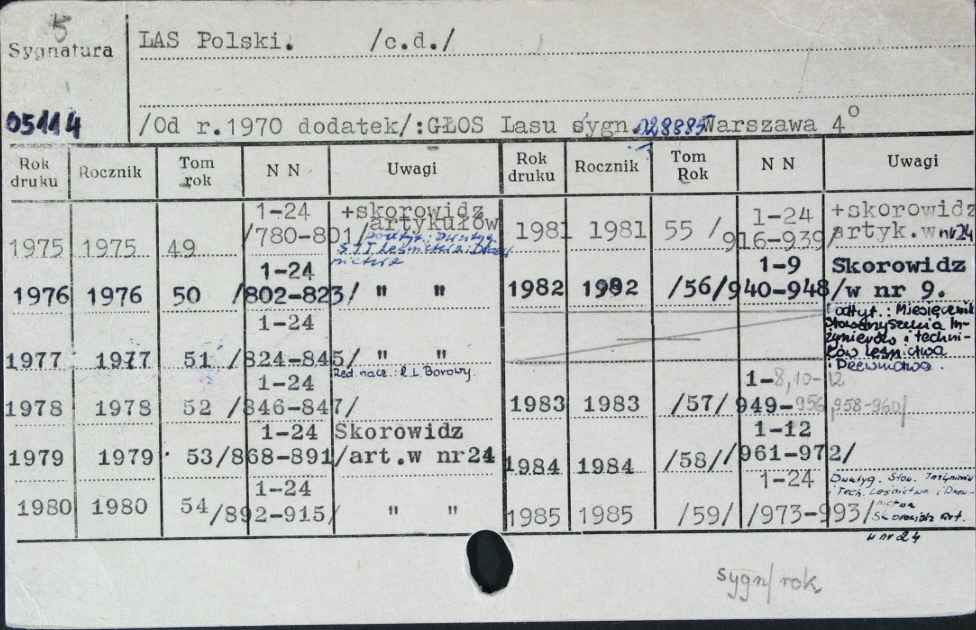 5
Sygnatura
LAS Polski. /c.d./
05114
/Od r.1970 dodatek/:GŁOS Lasu sygn. 028885 Warszawa 4°
Rok druku Rocznik Tom rok N N Uwagi Rok druku Rocznik Tom Rok N N Uwagi
1975 1975 49 1-24 /780-801/ +skorowidz artykułów
S I T Leśnictwa i Drzewnictwa
1976 1976 50 1-24 /802-823/ " "
1977 1977 51 1-24 /824-845/ " "
Red. nacz.: R. L. Borowy.
1978 1978 52 1-24 /846-847/
1979 1979 53 1-24 /868-891/ Skorowidz /art.w nr24
1980 1980 54 1-24 /892-915/ " "
1981 1981 55 1-24 /916-939/ +skorowidz artyk.w nr 24
1982 1982 /56/ 1-9 /940-948/ Skorowidz /w nr 9.
podtyt.: Miesięcznik
Stowarzyszenia In-
żynierów i techni-
ków leśnictwa
i Drzewnictwa.
1983 1983 /57/ 1-8,10-12 949-956,958-960/
1984 1984 /58/ 1-12 /961-972/
1985 1985 /59/ 1-24 /973-993/
Dwutyg. Stow. Inżynierów
i Tech. Leśnictwa i Drzew-
nictwa
Skorowidz art.
w nr 24
sygn/rok